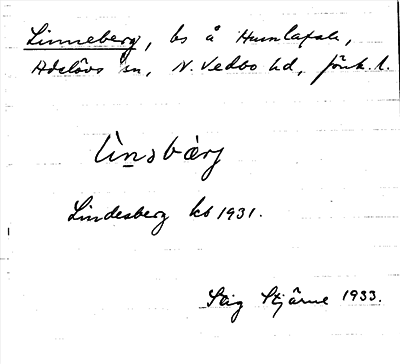 Linneberg, bs å Humlarp,
Adelövs sn, N. Vedbo hd, Jönk. l.
lìnsbàrj
Lindesberg kb 1931.
Stig Stjärne 1933.